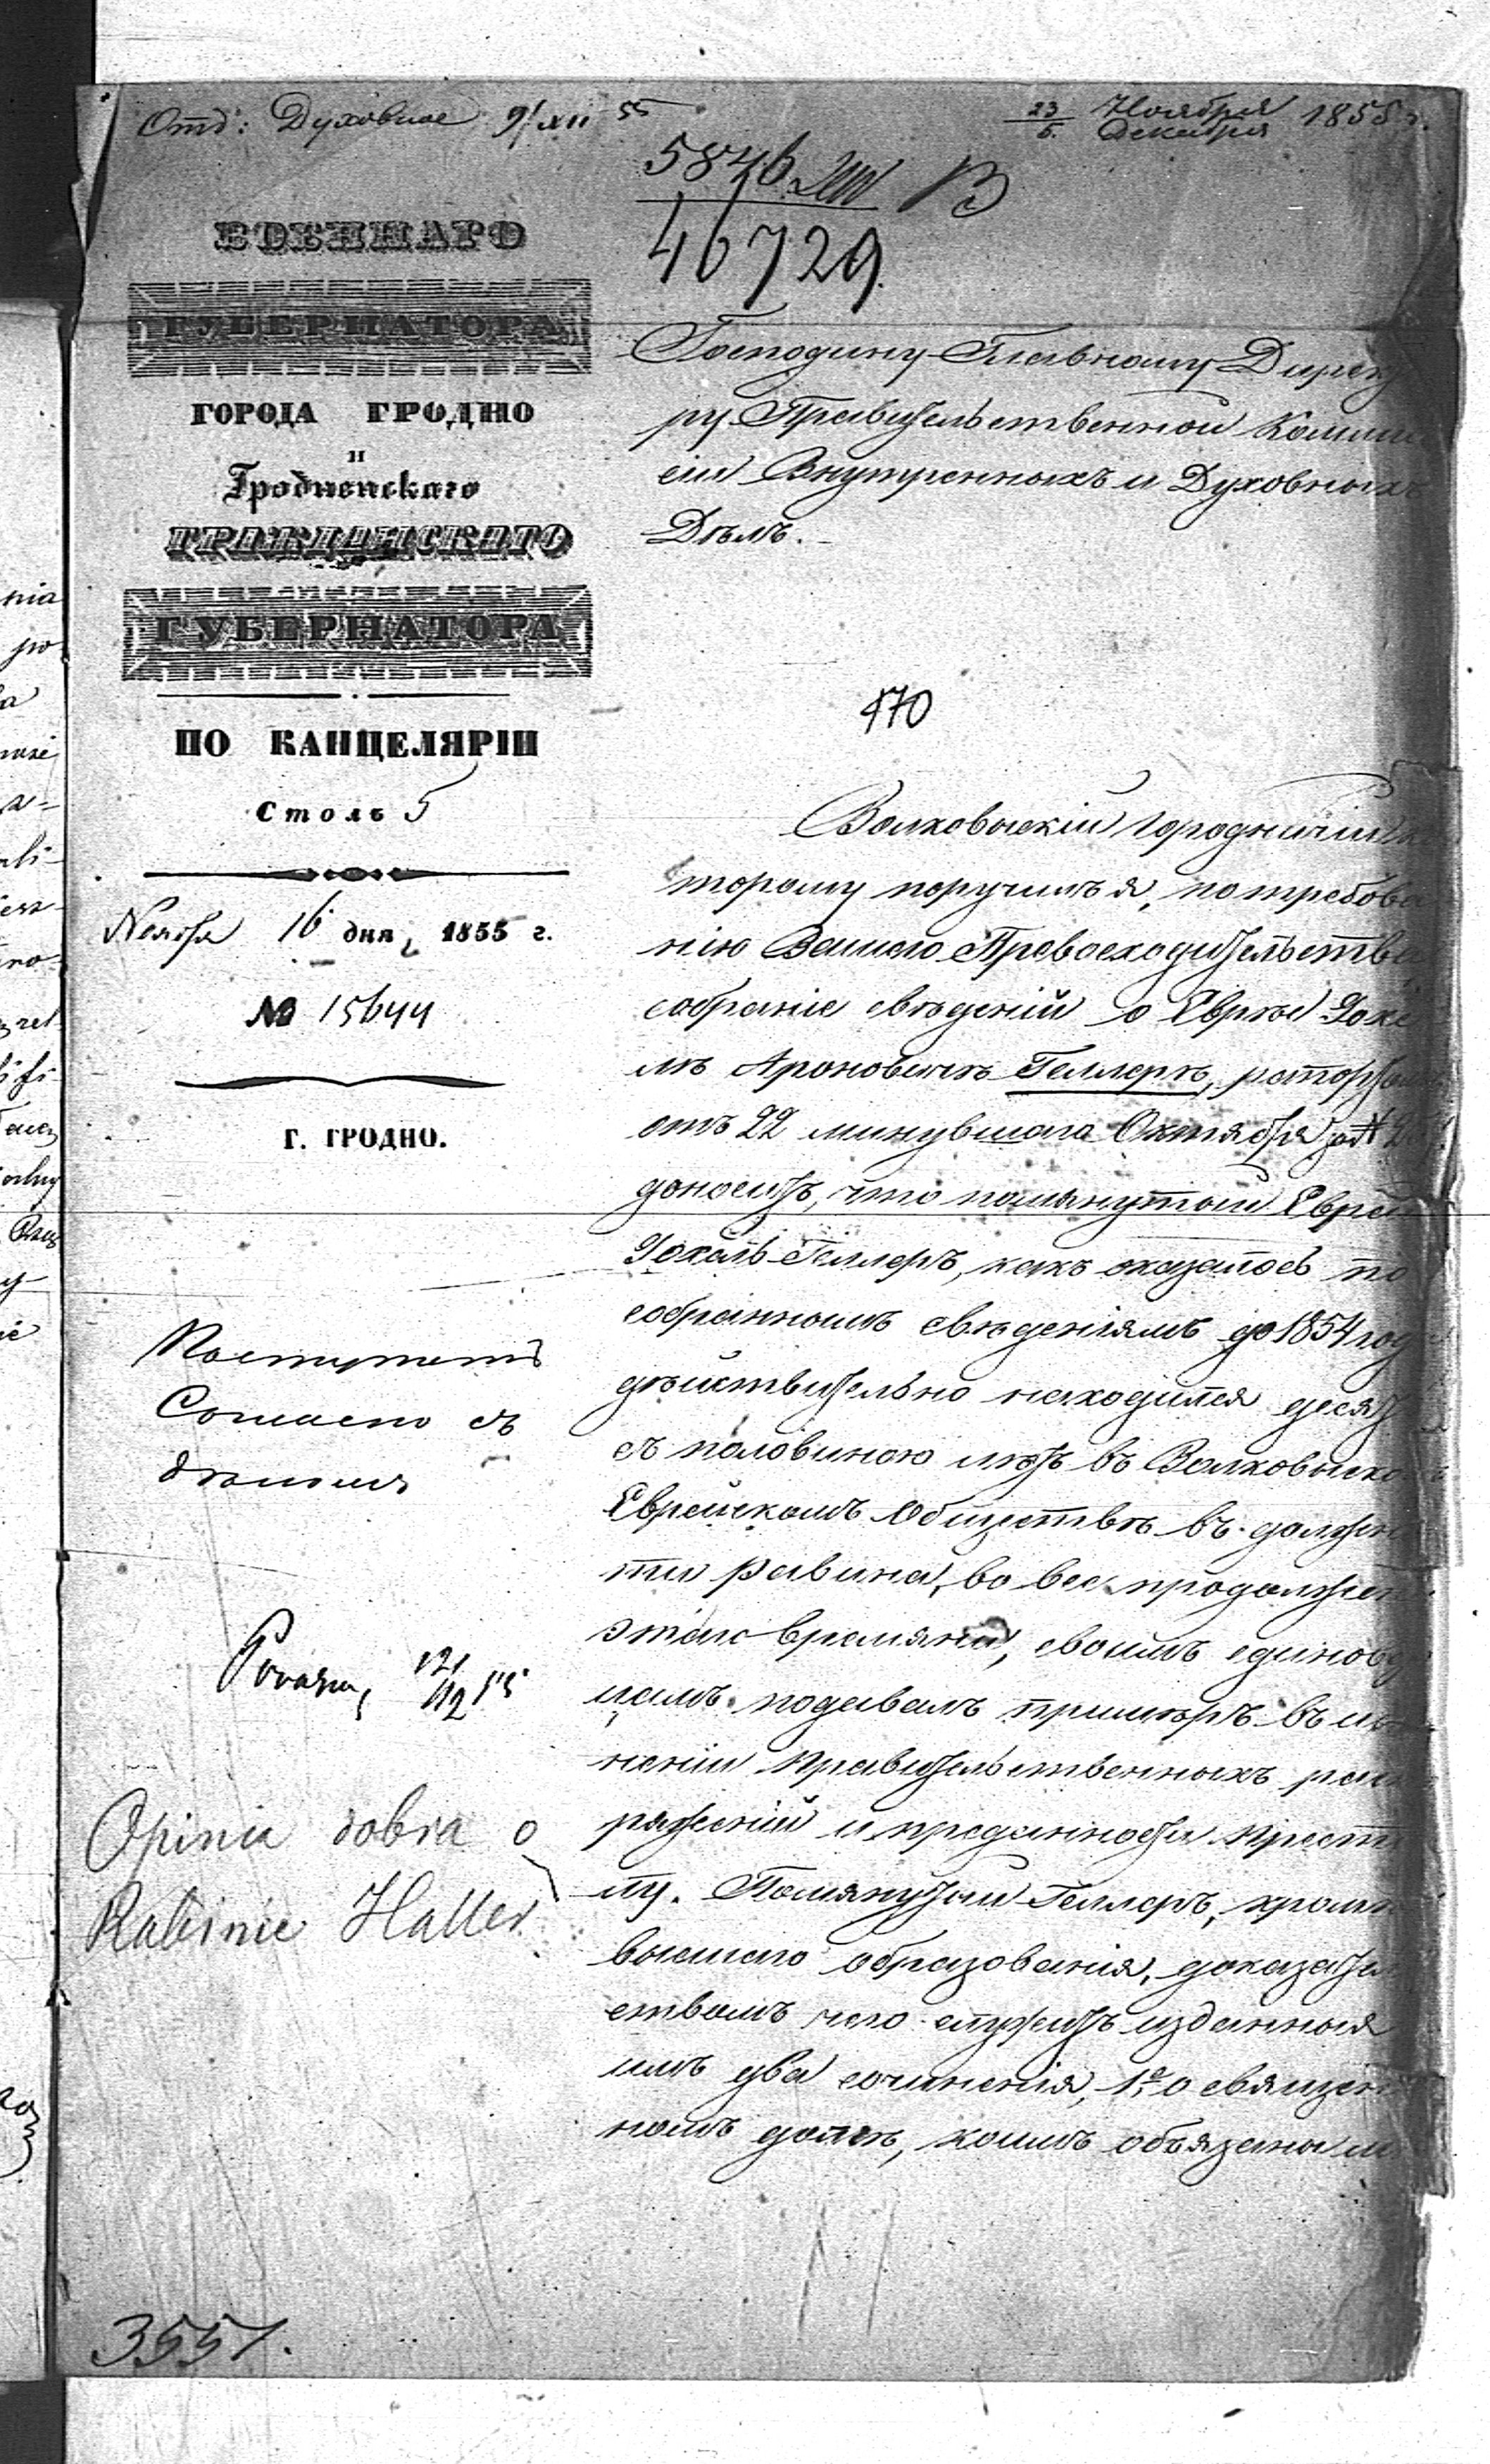 Отд: Духовное 9/XII 55
23/5. Ноября Декабря 1855 г.
5846
46729
В
ВОЕННАГО
ГУБЕРНАТОРА
ГОРОДА ГРОДНО
И
Гродненскаго
ГРАЖДАНСКАГО
ГУБЕРНАТОРА
ПО КАНЦЕЛЯРІИ
Столъ 5
Ноября 16 дня, 1855 г.
№ 15644
Г. ГРОДНО.
Господину Главному Дирек
ру Правительственной Комми
сіи Внутреннихъ и Духовныхъ
Дѣлъ.
170
Волковыскій Городничій
торому поручилъ я, по требова
нію Вашего Превосходительства
собраніе свѣденій о Евреѣ Іохе
лѣ Ароновичѣ Геллерѣ, рапортомъ
отъ 22 минувшаго Октября за №
доноситъ, что помянутый Еврей
Іохель Геллеръ, какъ оказалось по
собраннымъ свѣденіямъ до 1854 год
дѣйствительно находился десять
съ половиною лѣтъ въ Волковыско
Еврейскомъ Обществѣ въ должно
ти равина, во все продолжен
этаго времяни, своимъ единов
цамъ подавалъ примѣръ въ
неніи Правительственныхъ рас
ряженій и преданности Прест
лу. Помянутый Геллеръ, кромѣ
высшаго образованія, доказатель
ствомъ чего служитъ изданныя
имъ два сочиненія, 1е о священ
номъ долгѣ, коимъ обязаны
Поступить
Согласно съ
дѣлами
12/12 55
Opinia dobra o
Rabinie Haller
3551.
nia
po
a